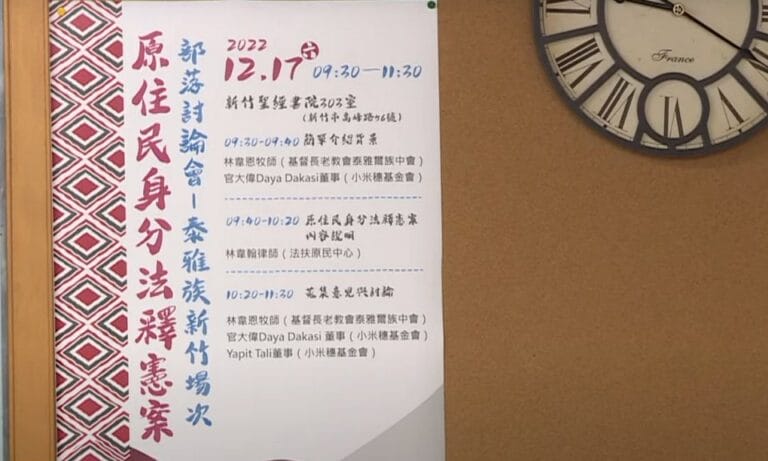 原住民身分法釋憲案
部落討論會—泰雅族新竹場次
2022
12.17 六 09:30—11:30
新竹聖經書院303室
(新竹市高峰路56號)
09:30-09:40 簡單介紹背景
林韋恩牧師（基督長老教會泰雅爾族中會）
官大偉Daya Dakasi董事（小米穗基金會）
09:40-10:20 原住民身分法釋憲案
內容說明
林韋翰律師（法扶原民中心）
10:20-11:30 蒐集意見與討論
林韋恩牧師（基督長老教會泰雅爾族中會）
官大偉Daya Dakasi 董事（小米穗基金會）
Yapit Tali董事（小米穗基金會）
France